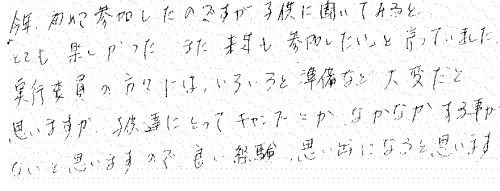 今年、初めて参加したのですが子供に聞いてみると
「とても楽しかった また来年も参加したい」と言っていました。
実行委員の方々には、いろいろと準備など大変だと
思いますが、子供達にとってキャンプとかなかなかする事が
ないと思いますので良い経験、思い出になると思います